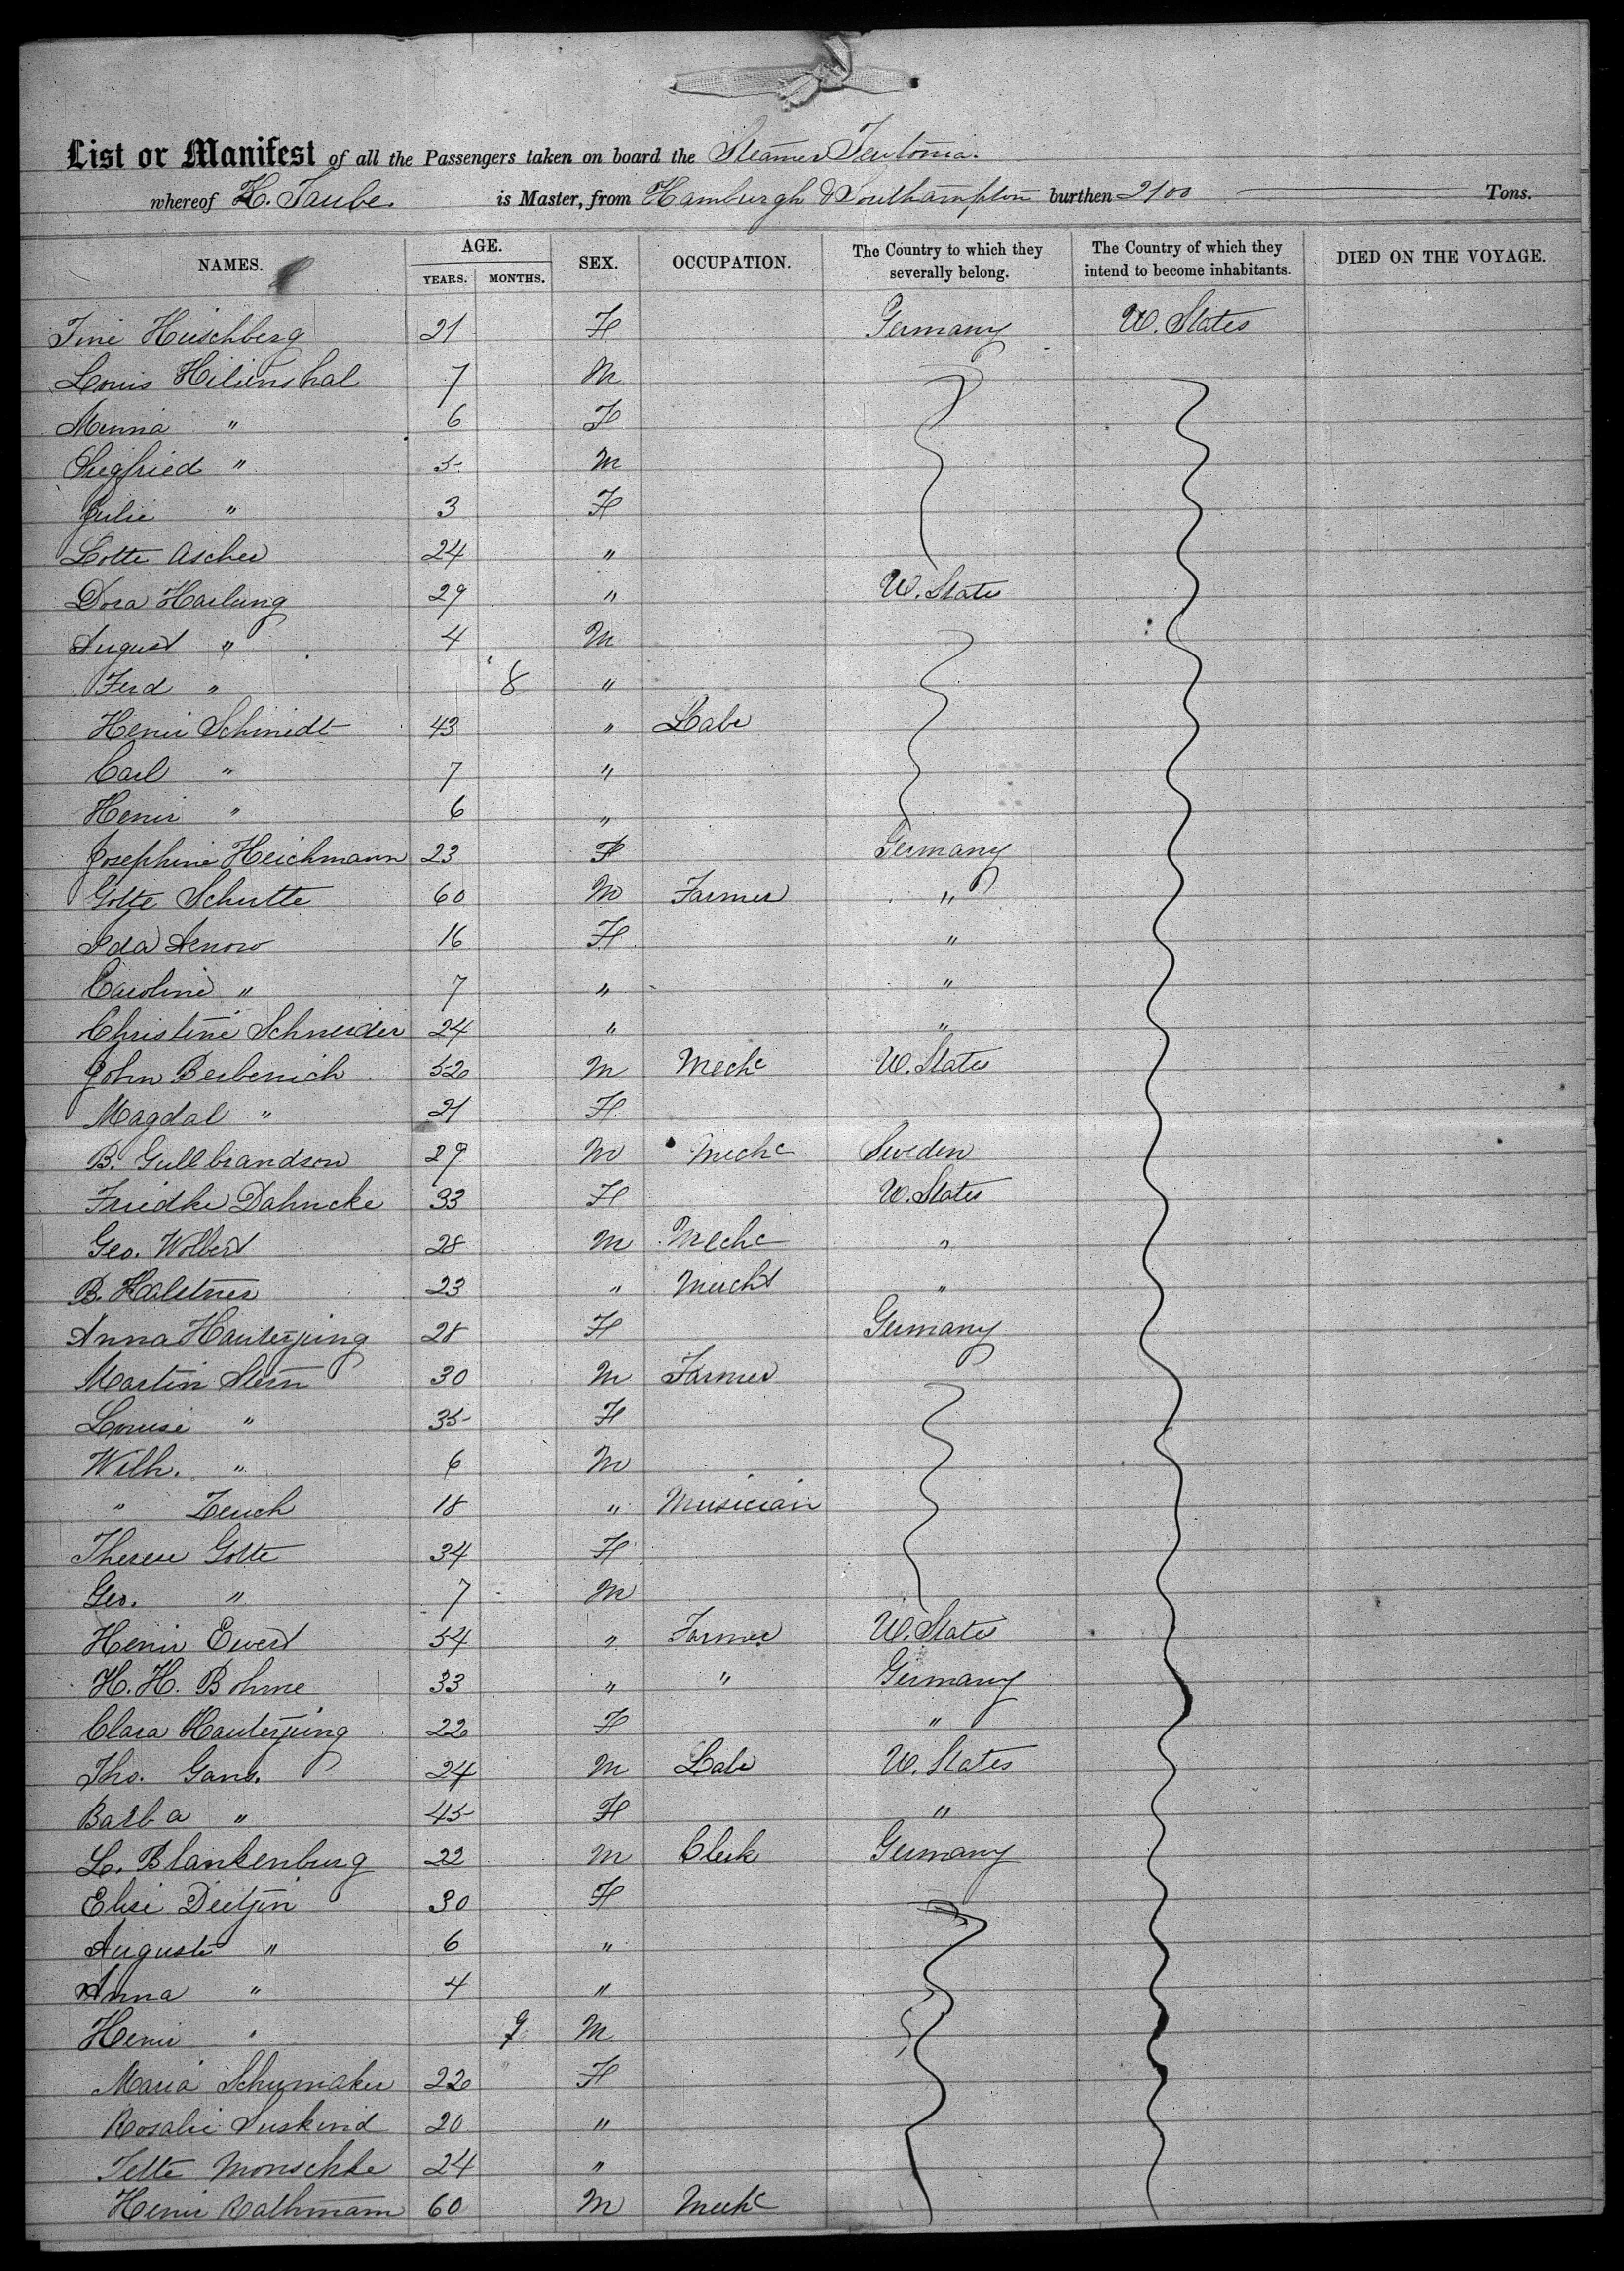 List or Manifest of all the Passengers taken on board the Steamer Teutonia.
whereof H. Taube. is Master, from Hamburgh & Southampton burthen 2100 Tons.
NAMES. AGE. YEARS. MONTHS. SEX. OCCUPATION. The Country to which they severally belong. The Country of which they intend to become inhabitants. DIED ON THE VOYAGE.
Tine Hirschberg 21 F Germany U. States
Louis 7 M
Minna " 6 F
Siegfried " 5 M
Julie " 3 F
Lotte Ascher 24 "
Dora Hartung 29 " U. States
August " 4 M
Ferd " 8 "
Henri Schmidt 43 " Labr
Carl " 7 "
Henri " 6 "
Josephine Heichmann 23 F Germany
Gotte Schutte 60 M Farmer "
Ida Arnow 16 F "
Caroline " 7 " "
Christine Schneider 24 " "
John Berbenich 52 M Mechc U. States
Magdal " 21 F
B. Gullbrandson 29 M Mechc Sweden
Friedke Dahncke 33 F U. States
Geo. Wolbert 28 M Mechc "
B. 23 " Mercht "
Anna Hauterjung 28 F Germany
Martin Stern 30 M Farmer
Louise " 35 F
Wilh. " 6 M
" Zeuch 18 " Musician
Therese Gotte 34 F
Geo. " 7 M
Henri Ewert 54 " Farmer U. States
H. H. Bohme 33 " " Germany
Clara Hauterjung 22 F "
Tho. Gans. 24 M Labr U. States
Barba " 45 F "
L. Blankenburg 22 M Clerk Germany
Elise Deetjen 30 F
Auguste " 6 "
Anna " 4 "
Henri " 9 M
Maria Schumaker 22 F
Rosalie Suskind 20 "
Jette Monschke 24 "
Henri Rathmann 60 M Mechc